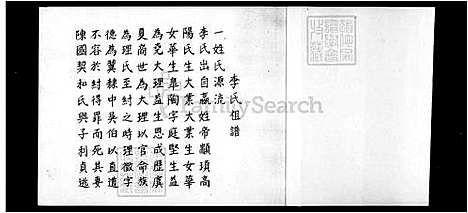 李氏祖譜
一姓氏源流
李氏出自嬴姓帝顓頊高
陽氏生大業大業生女華
女華生臯陶字庭堅生益
益生恩成歷虞
夏商世為大理以官命族
為理氏至紂之時理徵字
德為翼隸中吳伯以直道
不容於紂得罪而死其妻
陳國契和氏與子利貞逃
FamilySearch